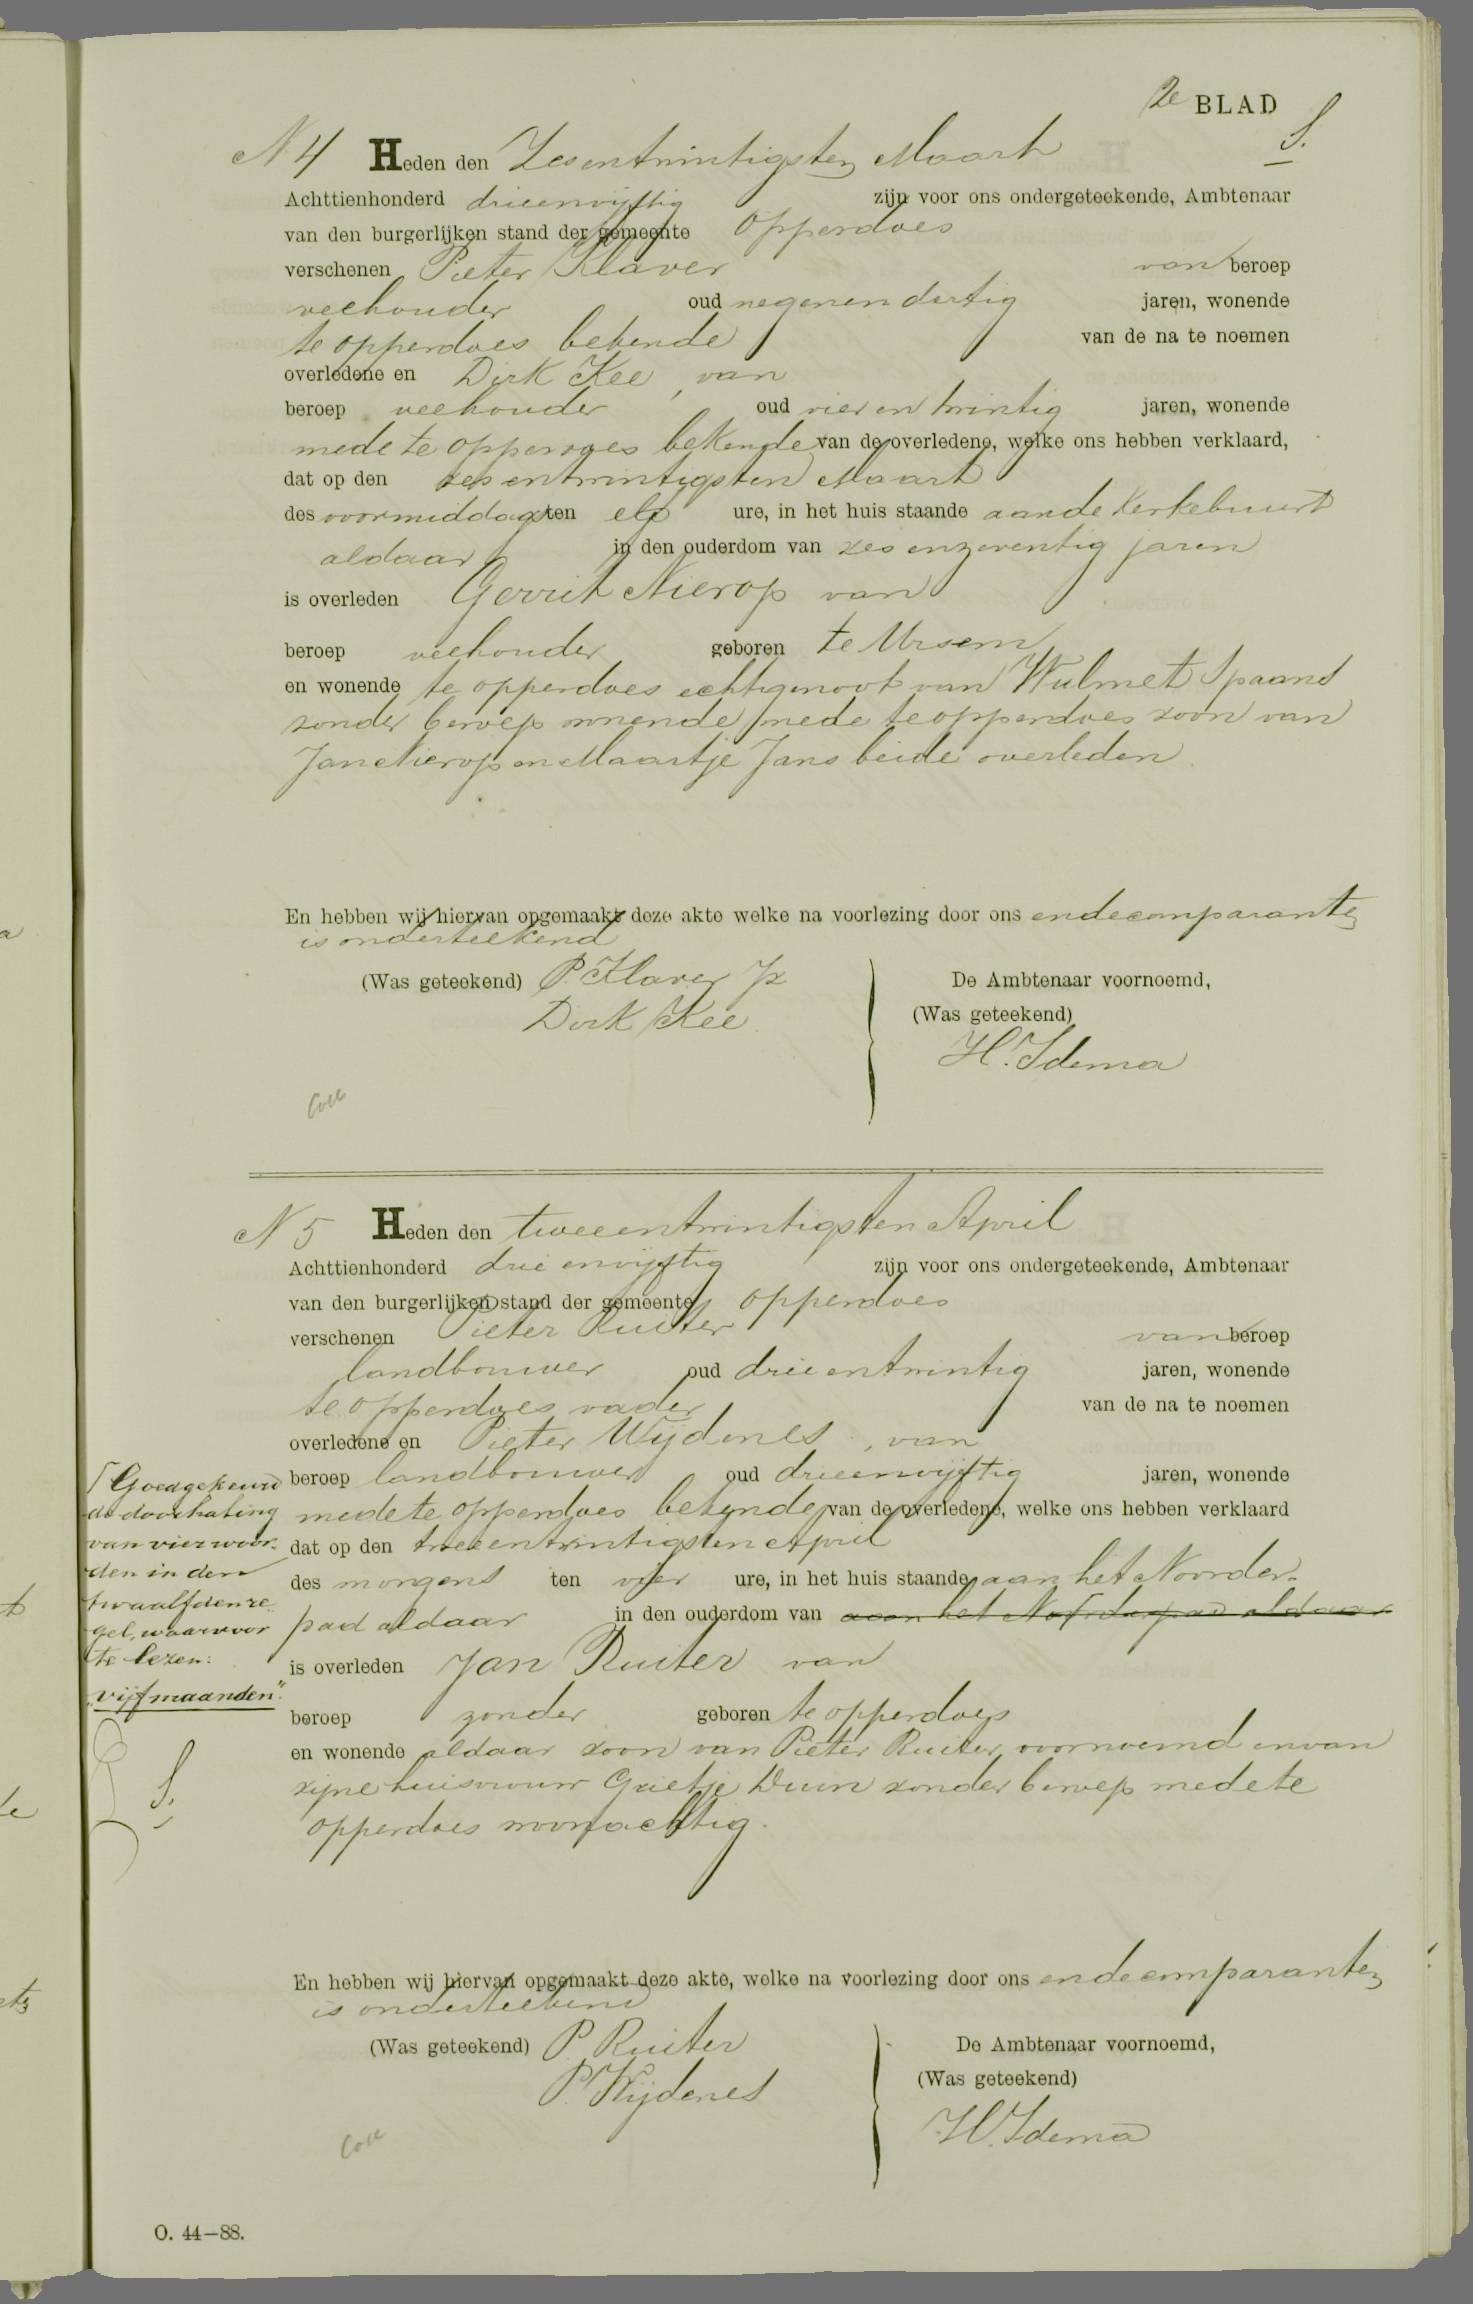 2e BLAD
S.
N 4 Heden den Zesentwintigsten Maart
Achttienhonderd drieenvijftig zijn voor ons ondergeteekende, Ambtenaar
van den burgerlijken stand der gemeente Opperdoes
verschenen Pieter Klaver van beroep
veehouder oud negenendertig jaren, wonende
te opperdoes bekende van de na te noemen
overledene en Dirk Kee, van
beroep veehouder oud vier en twintig jaren, wonende
mede te opperdoes bekende van de overledene, welke ons hebben verklaard,
dat op den zes entwintigsten Maart
des voormiddags ten elf ure, in het huis staande aan de Kerkebuurt
aldaar in den ouderdom van zes enzeventig jaren
is overleden Gerrit Nierop van
beroep veehouder geboren te Ursem
en wonende te opperdoes echtgenoot van Wulmet Spaans
zonder beroep wonende mede te opperdoes zoon van
Jan Nierop en Maartje Jans beide overleden
En hebben wij hiervan opgemaakt deze akte welke na voorlezing door ons en de comparanten
is onderteekend
(Was geteekend) P. Klaver Jz
Dirk Kee
De Ambtenaar voornoemd,
(Was geteekend)
H. Idema
Coll
N 5 Heden den tweeentwintigsten April
Achttienhonderd drie envijftig zijn voor ons ondergeteekende, Ambtenaar
van den burgerlijken stand der gemeente opperdoes
verschenen Pieter Ruiter van beroep
landbouwer oud drieentwintig jaren, wonende
te opperdoes vader van de na te noemen
overledene en Pieter Wijdenes, van
beroep landbouwer oud drieenvijftig jaren, wonende
mede te opperdoes bekende van de overledene, welke ons hebben verklaard
dat op den tweeentwintigsten April
des morgens ten vier ure, in het huis staande aan het Noorder-
pad aldaar in den ouderdom van aan het Noorderpad aldaar
is overleden Jan Ruiter van
beroep zonder geboren te opperdoes
en wonende aldaar zoon van Pieter Ruiter voornoemd en van
zijne huisvrouw Grietje Duin zonder beroep mede te
opperdoes woonachtig.
Goedgekeurd
de doorhaling
van vier woor-
den in den
twaalfden re-
gel, waarvoor
te lezen:
"vijf maanden".
S.
En hebben wij hiervan opgemaakt deze akte, welke na voorlezing door ons en de comparanten
is onderteekend
(Was geteekend) P Ruiter
P. Wijdenes
De Ambtenaar voornoemd,
(Was geteekend)
H. Idema
Coll
O. 44—88.